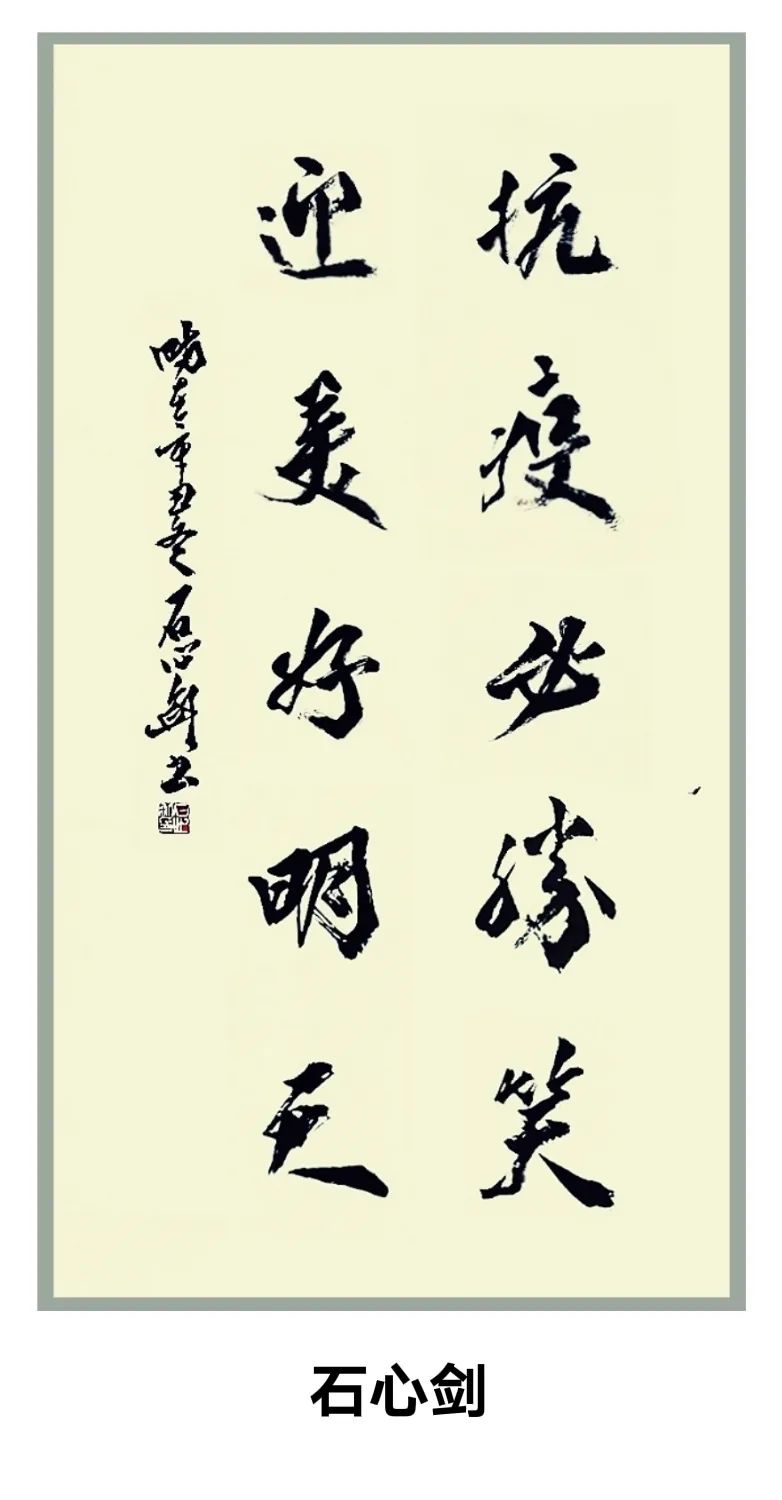 抗疫必勝笑
迎美好明天
岁在辛丑冬石心剑书
石心剑